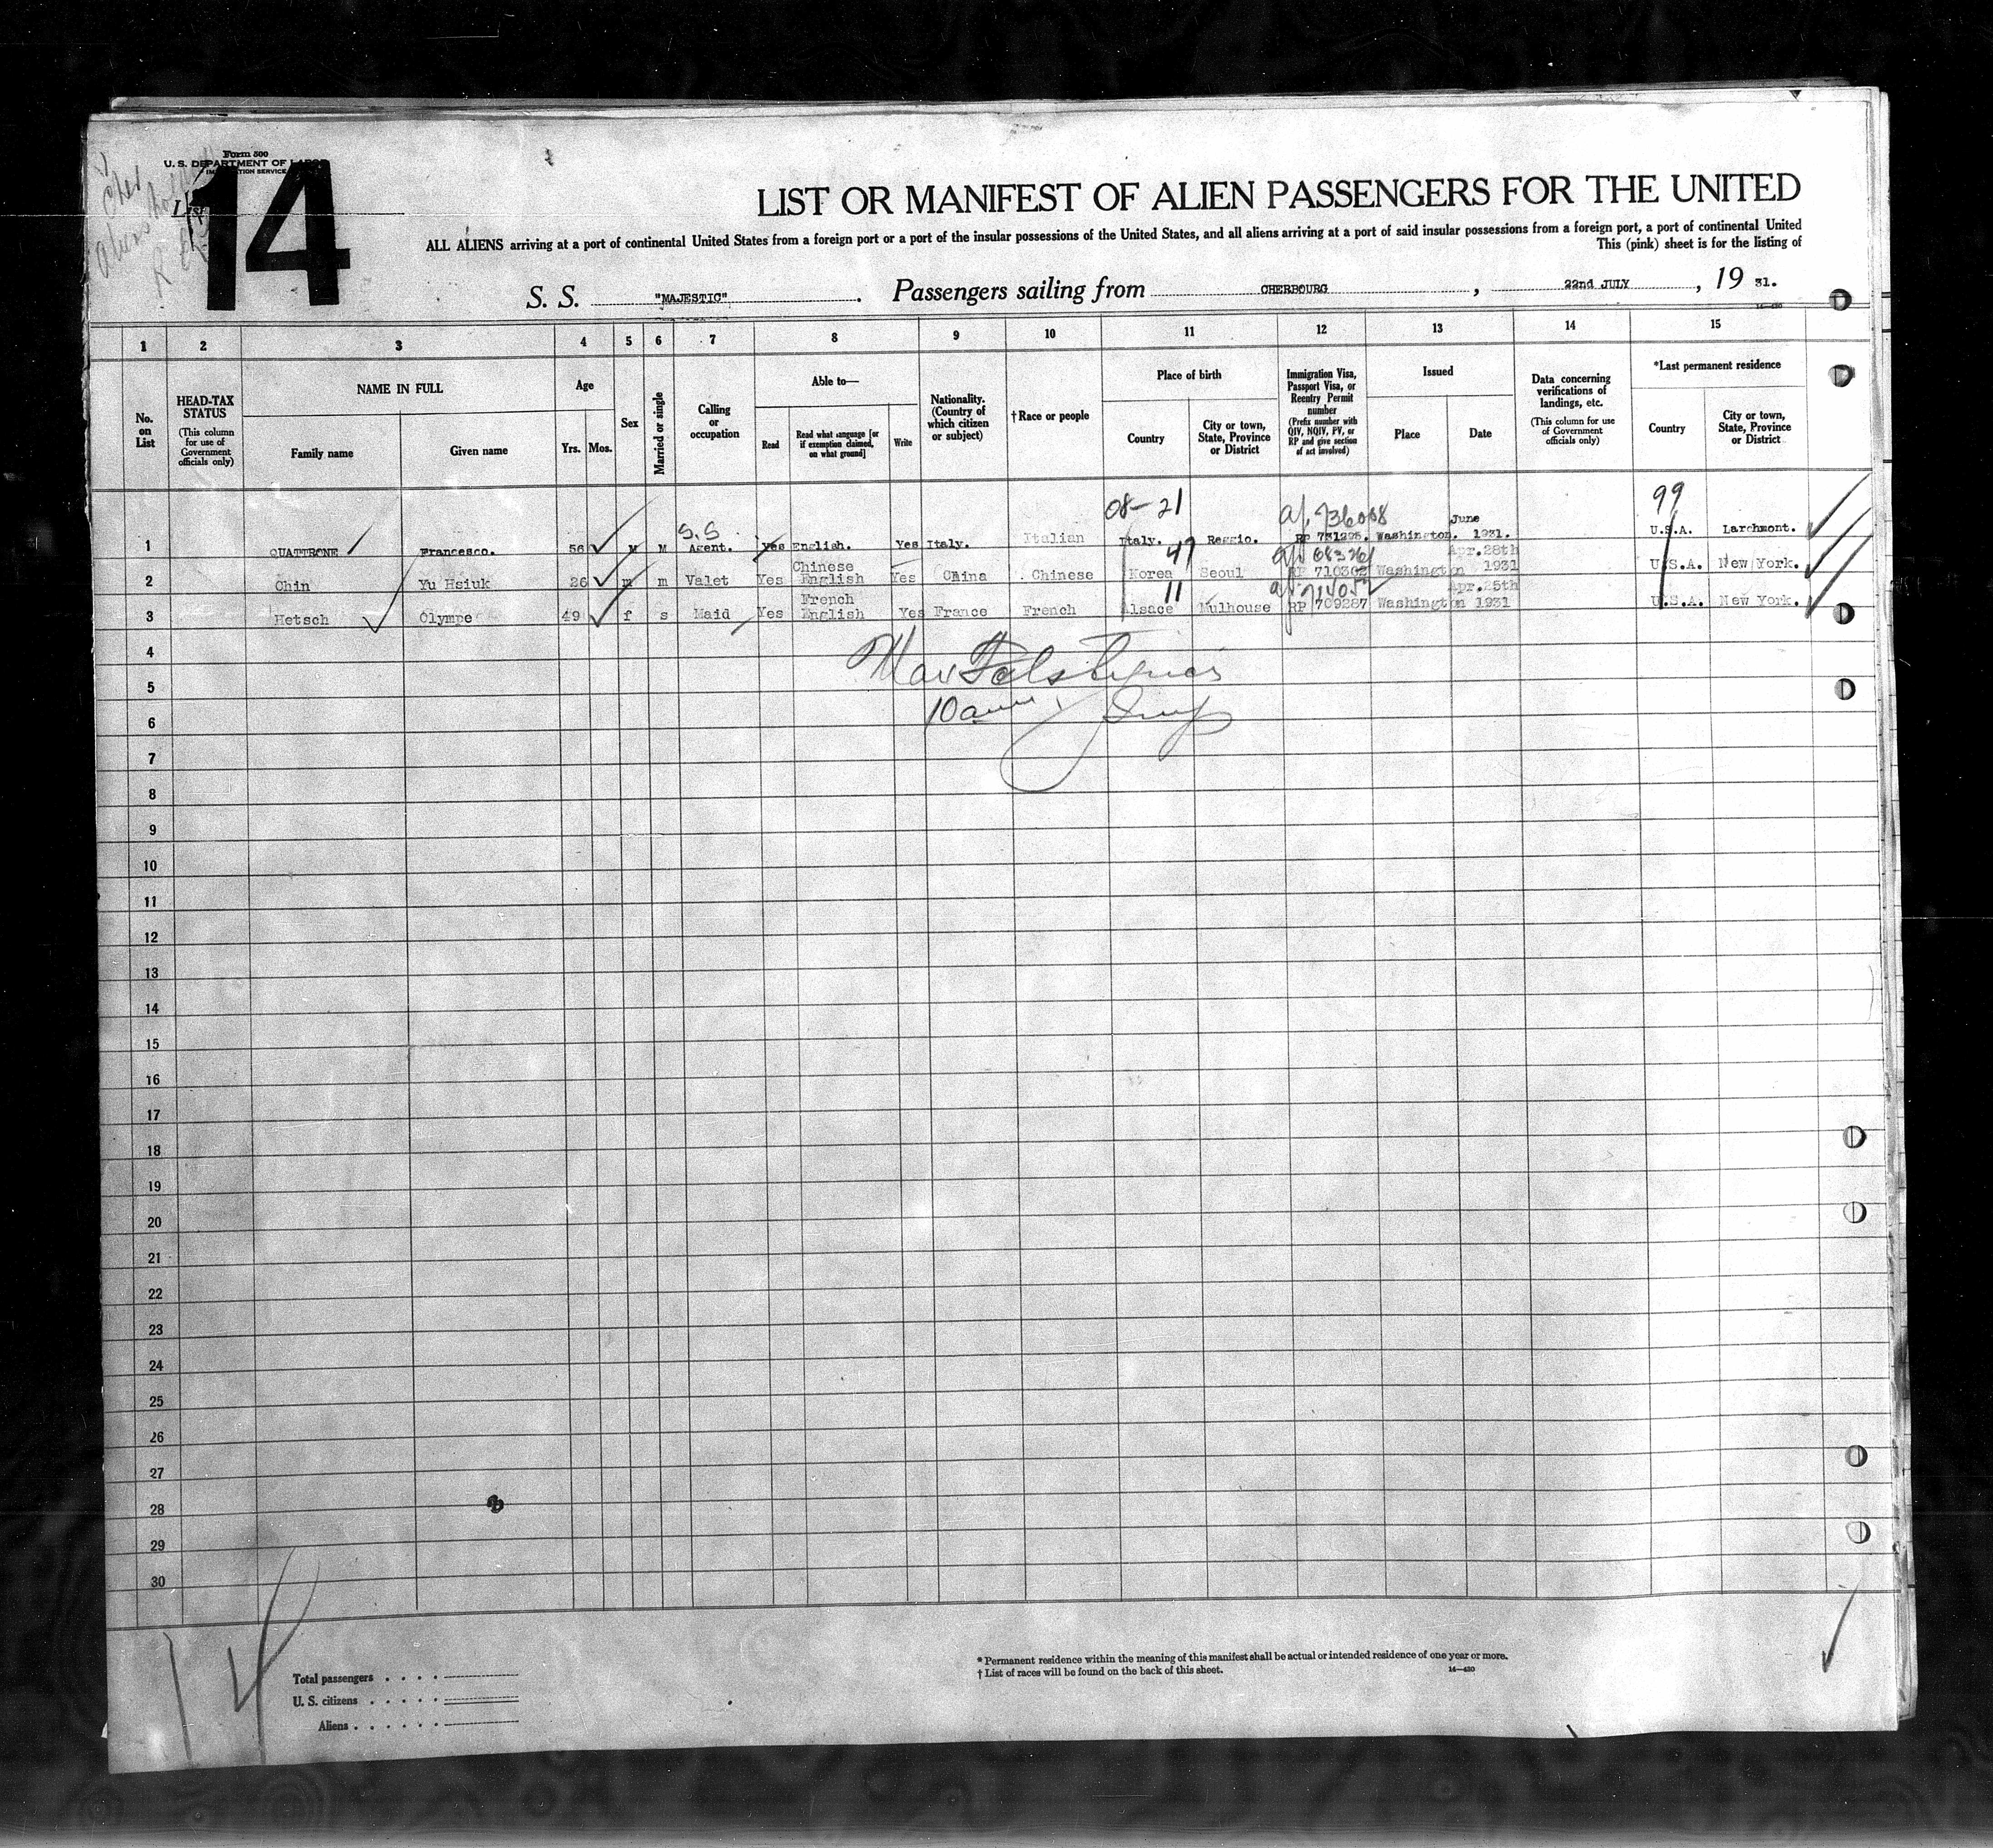 Form 500
U. S. DEPARTMENT OF LABOR
IMMIGRATION SERVICE
List
14
LIST OR MANIFEST OF ALIEN PASSENGERS FOR THE UNITED
ALL ALIENS arriving at a port of continental United States from a foreign port or a port of the insular possessions of the United States, and all aliens arriving at a port of said insular possessions from a foreign port, a port of continental United
This (pink) sheet is for the listing of
S. S. "MAJESTIC". Passengers sailing from CHERBOURG, 22nd JULY, 19 31.
1 2 3 4 5 6 7 8 9 10 11 12 13 14 15
No. on List
HEAD-TAX STATUS (This column for use of Government officials only)
NAME IN FULL
Family name Given name
Age
Yrs. Mos.
Sex
Married or single
Calling or occupation
Able to—
Read Read what language [or if exemption claimed, on what ground] Write
Nationality. (Country of which citizen or subject)
†Race or people
Place of birth
Country City or town, State, Province or District
Immigration Visa, Passport Visa, or Reentry Permit number (Prefix number with QIV, NQIV, PV, or RP and give section of act involved)
Issued
Place Date
Data concerning verifications of landings, etc. (This column for use of Government officials only)
*Last permanent residence
Country City or town, State, Province or District
08-21 99
S.S June
1 QUATTRONE Francesco. 56 M M Agent. Yes English. Yes Italy. Italian Italy. Reggio. RP 731295. Washington. 1931. U.S.A. Larchmont.
47
Chinese Apr.28th
2 Chin Yu Hsiuk 26 m m Valet Yes English Yes China Chinese Korea Seoul RP 710302 Washington 1931 U.S.A. New York.
11
French Apr.25th
3 Hetsch Olympe 49 f s Maid Yes English Yes France French Alsace Mulhouse RP 709287 Washington 1931 U.S.A. New York.
4
5
10am
6
7
8
9
10
11
12
13
14
15
16
17
18
19
20
21
22
23
24
25
26
27
28
29
30
14
Total passengers
U. S. citizens
Aliens
* Permanent residence within the meaning of this manifest shall be actual or intended residence of one year or more.
† List of races will be found on the back of this sheet.
14—430